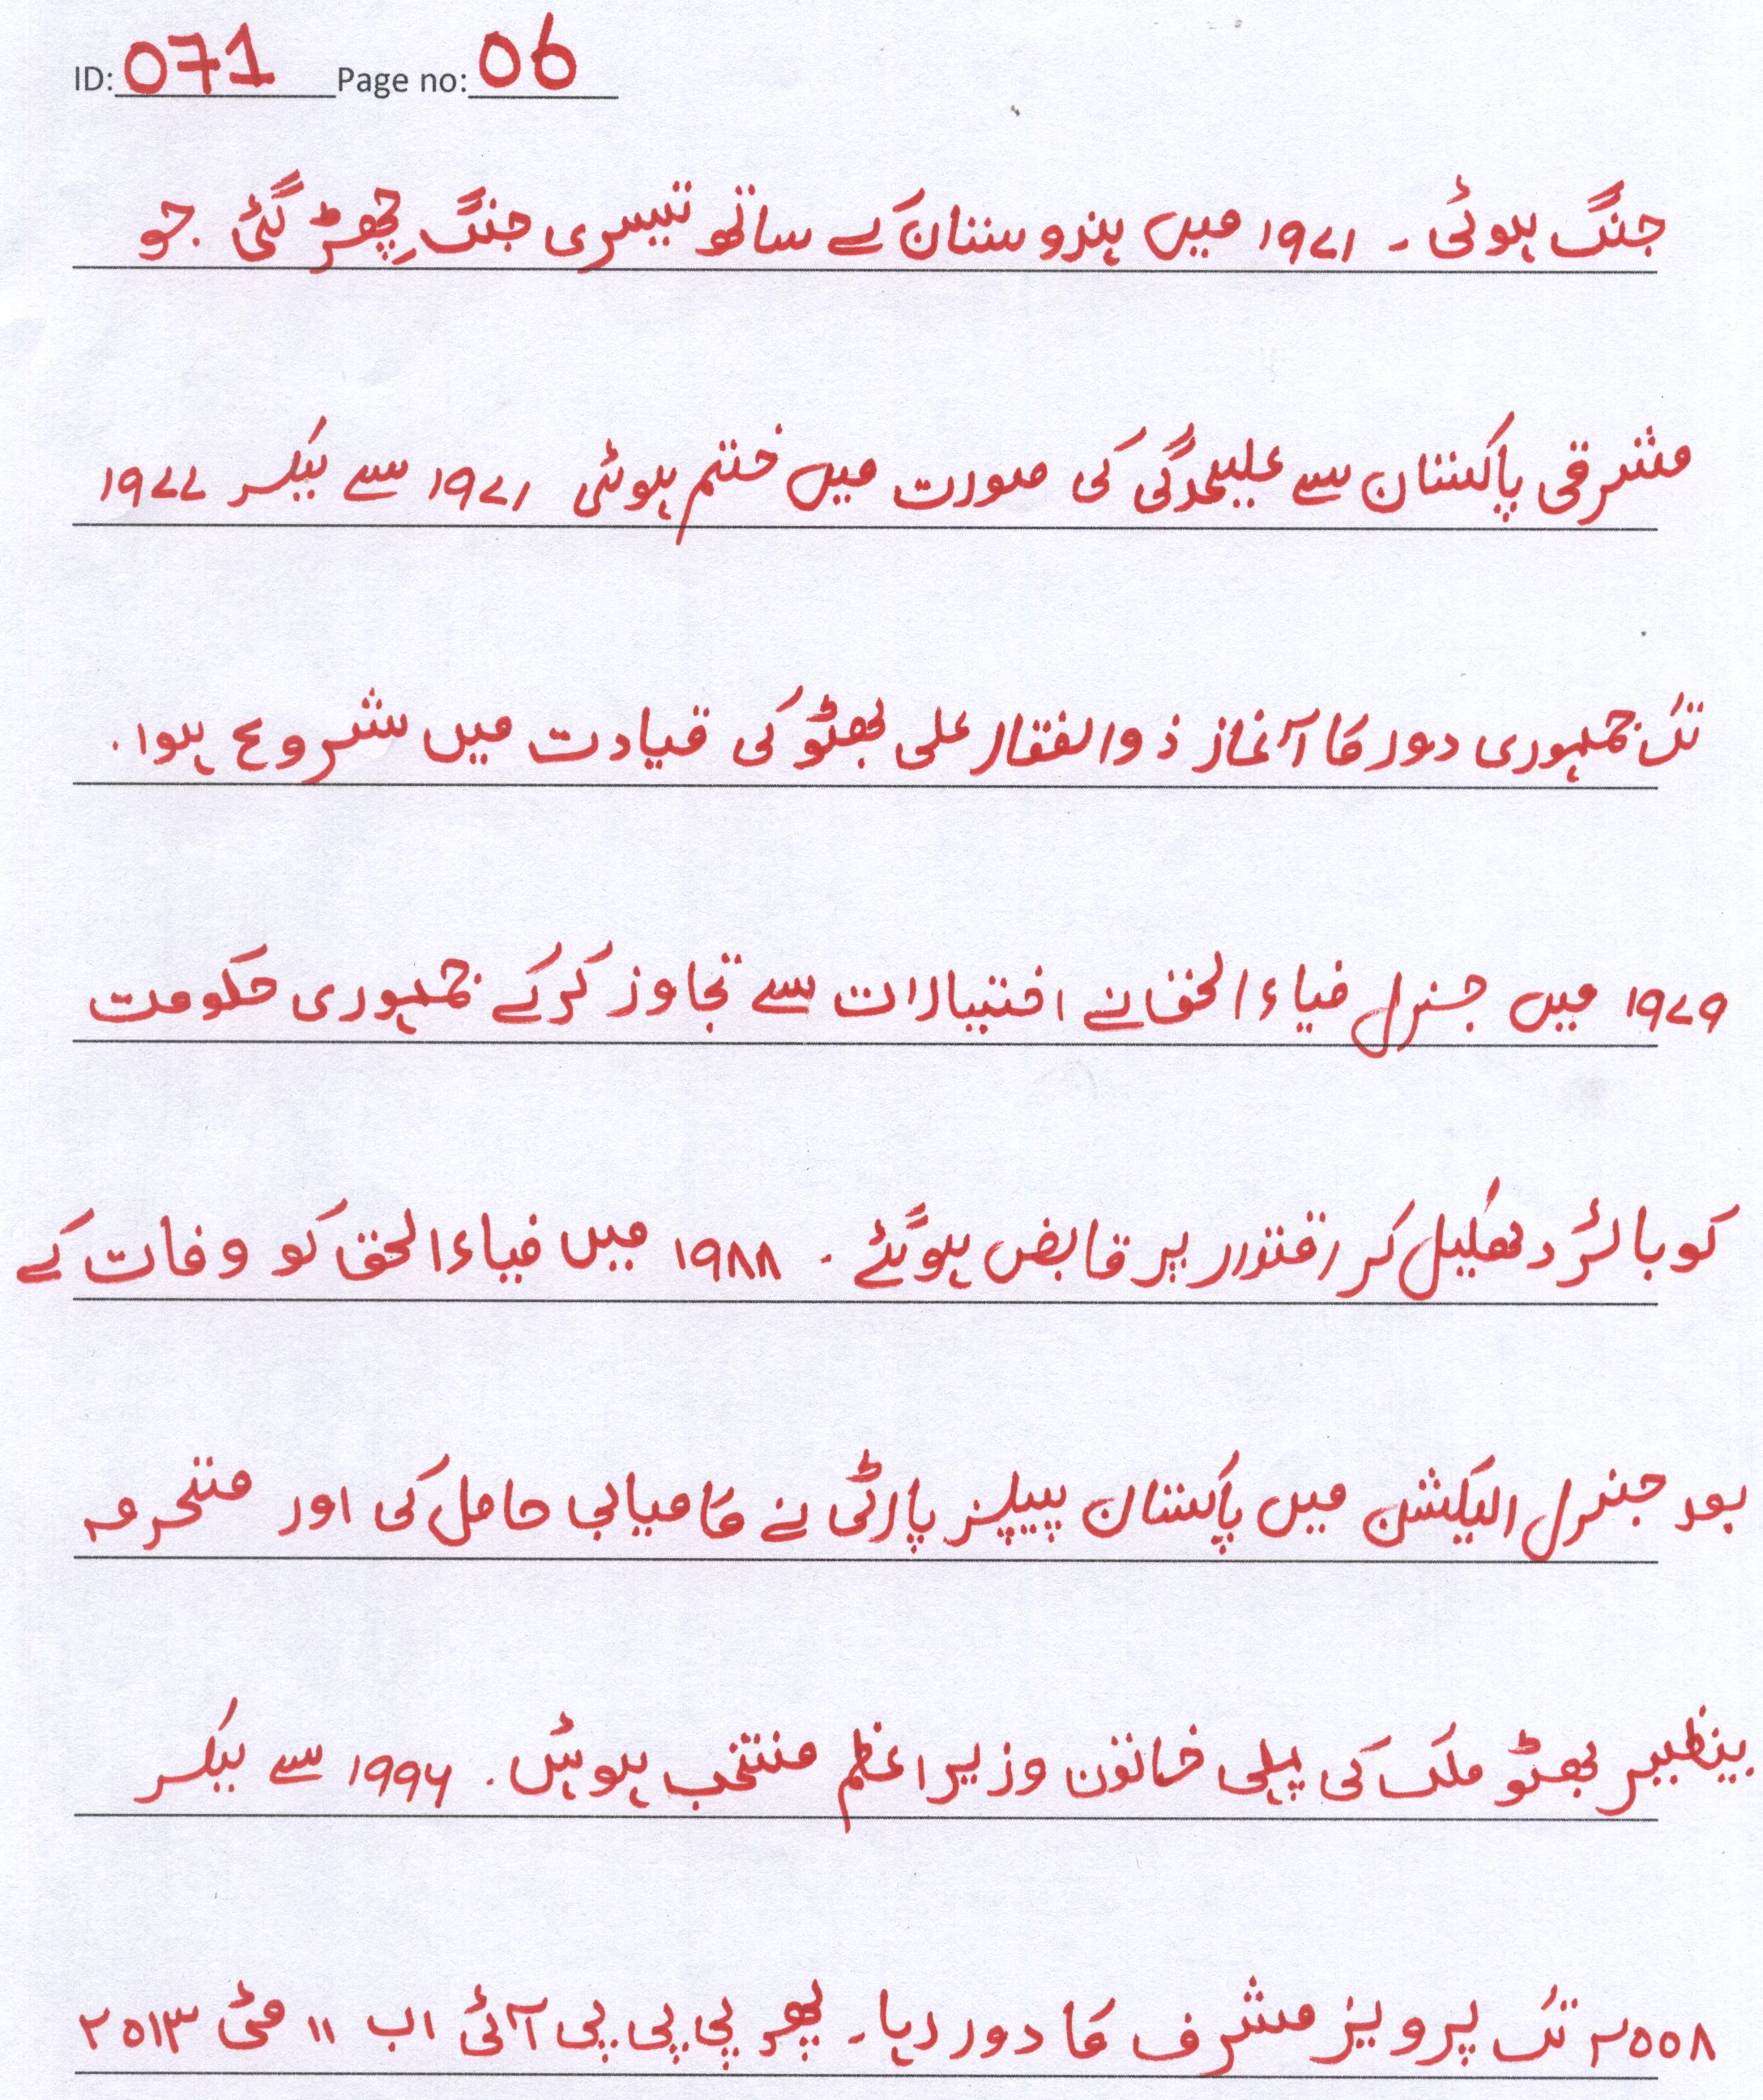 ID: 071 Page no: 06
جنگ ہوئی ۔ ۱۹۷۱ میں ہندوستان کے ساتھ تیسری جنگ چِھڑ گئی جو
مشرقی پاکستان سے علیحدگی کی صورت میں ختم ہوئی ۱۹۷۱ سے لیکر ۱۹۷۷
تک جمہوری دور کا آغاز ذوالفقار علی بھٹو کی قیادت میں شروع ہوا.
۱۹۷۹ میں جنرل ضیاء الحق نے اختیارات سے تجاوز کرکے جمہوری حکومت
کو بائر دھکیل کر اقتدار پر قابض ہوگئے . ۱۹۸۸ میں ضیاءالحق کو وفات کے
بعد جنرل الیکشن میں پاکستان پیپلز پارٹی نے کامیابی حاصل کی اور محترمہ
بینظیر بھٹو ملک کی پہلی خاتون وزیراعظم منتخب ہوئیں. ۱۹۹۶ سے لیکر
۲۰۰۸ تک پرویز مشرف کا دور رہا۔ پھر پی پی پی آئی اب ۱۱ مئی ۲۰۱۳